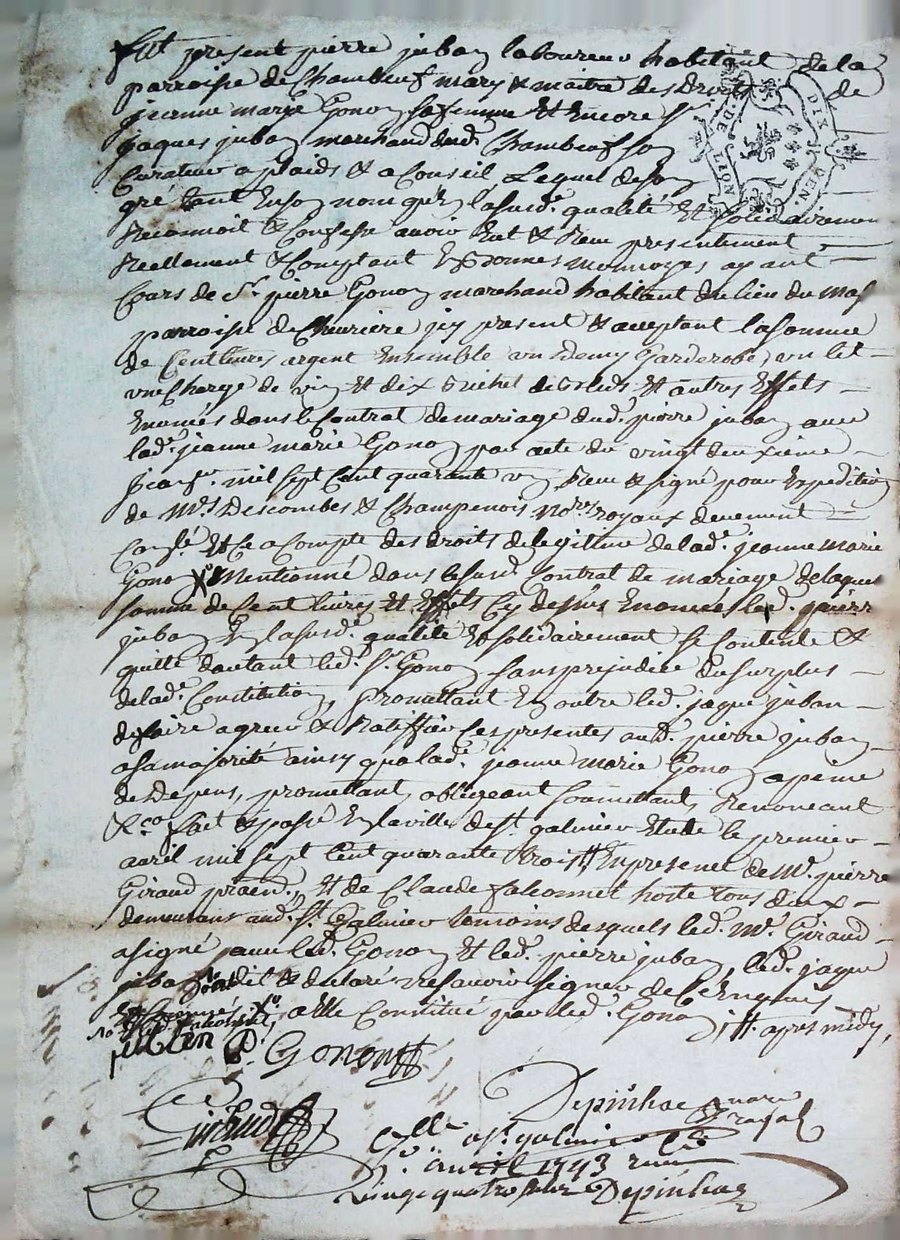 fut present pierre juban laboureur habitant de la
parroisse de Chambeuf mary & maitre des Droits de
jeanne marie Gonon sa femme Et Encore Sr
jaques juban marchand dud. Chambeuf son
Curateur a plaids & a Conseil Lequel de son
gré tant En son nom qu'en lasusd. qualité Et solidairement
Reconnoit & Confesse avoir Eut & Receu presentement
Reellement & Comptant Es bonnes monnoyes ayant
Cours de Sr. pierre Gonon marchand habitant du lieu du Mas
parroisse de Chevriere jcy present & acceptant la somme
de Cent livres argent Ensemble un Demy Garderobe, un lit
une Charge de vin Et dix bichet de bled Et autres Effets
Enoncés dans le Contrat de mariage dud. pierre juban avec
lad. jeanne marie Gonon par acte du vingt deuxieme
mil sept Cent quarante un Receu & signé pour Expedition
de Mrs. Descombes & Champenois Nores. royaux deuement
Et Ce a Compte des droits de legitime de lad. jeanne marie
Gonon Mentionné dans lesusd. Contrat de mariage de laquelle
somme de Cent livres Et Effets Cy dessus Enoncée led. pierre
juban En lasusd. qualité Et solidairement se Contente &
quitte d'autant led. Sr. Gonon sans prejudice du surplus
de lad. Constitution, promettant En outre led. jaque juban
de faire agreer & Ratiffier Ces presentes aud. pierre juban
a sa majorité ainsy qua lad. jeanne marie Gonon a peine
de Depens, promettant, obligeant soumettant, Renonceant
&ca. fait & passé En la ville de St. galmier Etude le premier
avril mil sept Cent quarante trois Enpresence de Mr. pierre
Giraud praen., Et de Claude falconnet hoste tous deux
demeurans aud. St. Galmier temoins desquels led. Mr. Giraud
a signé avec led. Gonon Et led. pierre juban, led. jaque
juban declaré ne savoir signer de Ce Enquis
a Elle Constitué par led. Gonon Ditt. apres midy,
juben P. Gonon
Giraud
Depinhac nore
royal
Clle. a St. galmier le
avril 1743 receu
vingt quatre sols Depinhac